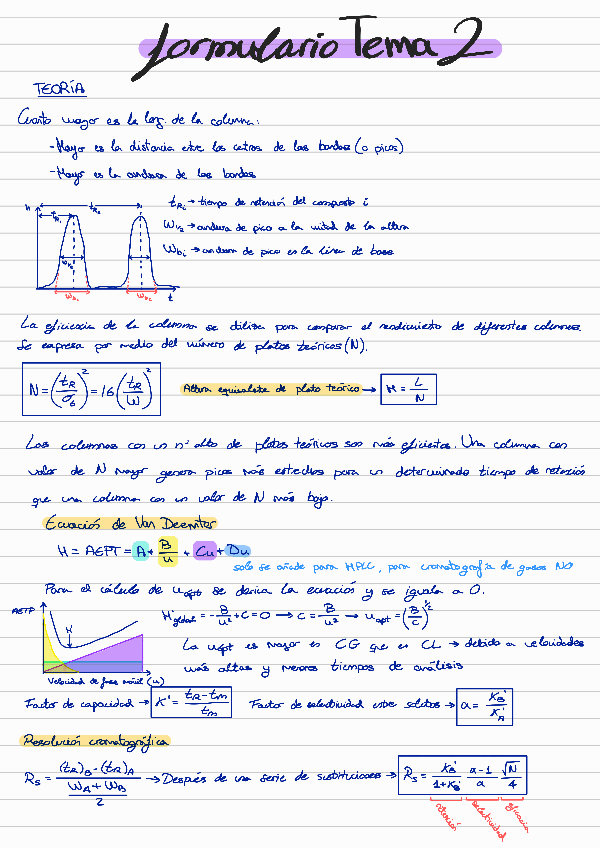 formulario Tema 2
TEORÍA
Cuanto mayor es la long. de la columna:
-Mayor es la distancia entre los centros de las bandas (o picos)
-Mayor es la anchura de las bandas
h
tR2
tR1
W1/2
Wb1
Wb2
t
tRi → tiempo de retención del compuesto i
W1/2 → anchura de pico a la mitad de la altura
Wbi → anchura de pico en la línea de base
La eficiencia de la columna se utiliza para comparar el rendimiento de diferentes columnas.
Se expresa por medio del número de platos teóricos (N).
N = (tR/σt)² = 16 (tR/W)²
Altura equivalente de plato teórico → H = L/N
Las columnas con un nº alto de platos teóricos son más eficientes. Una columna con
valor de N mayor genera picos más estrechos para un determinado tiempo de retención
que una columna con un valor de N más bajo.
Ecuación de Van Deemter
H = AEPT = A + B/u + Cu + Du
solo se añade para HPLC, para cromatografía de gases NO
Para el cálculo de uopt se deriva la ecuación y se iguala a 0.
AETP
H
Velocidad de fase móvil (u)
H'global = -B/u² + C = 0 → C = B/u² → uopt = (B/C)^1/2
La uopt es mayor en CG que en CL → debido a velocidades
más altas y menores tiempos de análisis
Factor de capacidad → K' = (tR - tm)/tm
Factor de selectividad entre solutos → α = K'B/K'A
Resolución cromatográfica
Rs = ((tR)B - (tR)A)/((WA + WB)/2) → Después de una serie de sustituciones → Rs = K'B/(1+K'B) · (α-1)/α · √N/4
retención
selectividad
eficacia